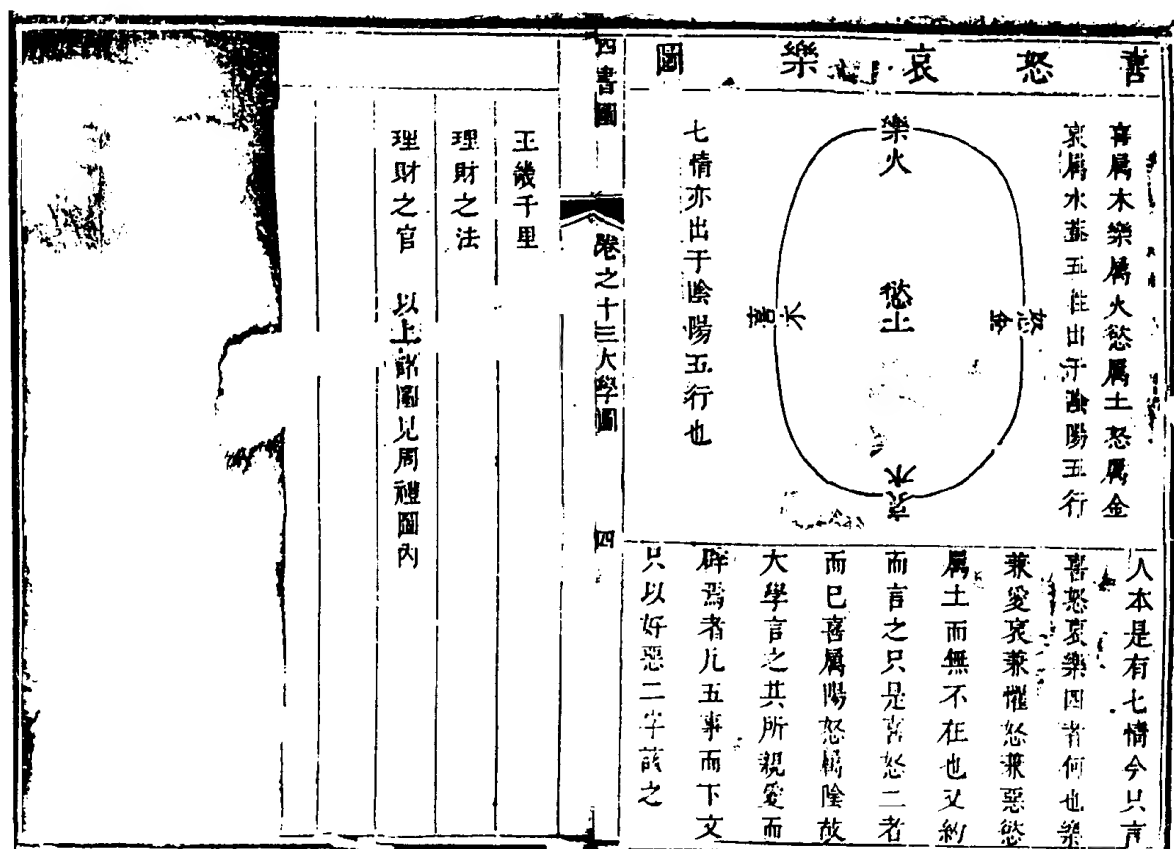 喜怒哀樂圖
喜属木樂属火慾属土怒属金
哀属水蓋五性出于陰陽五行
樂火
怒金
慾土
喜木
哀水
七情亦出于陰陽五行也
人本是有七情今只言
喜怒哀樂四者何也樂
兼愛哀兼懼怒兼惡慾
属土而無不在也又約
而言之只是喜怒二者
而已喜属陽怒属陰故
大學言之其所親愛而
辟焉者凡五事而下文
只以好惡二字該之
四書圖
卷之十三大學圖
四
王畿千里
理財之法
理財之官 以上諸圖見周禮圖內